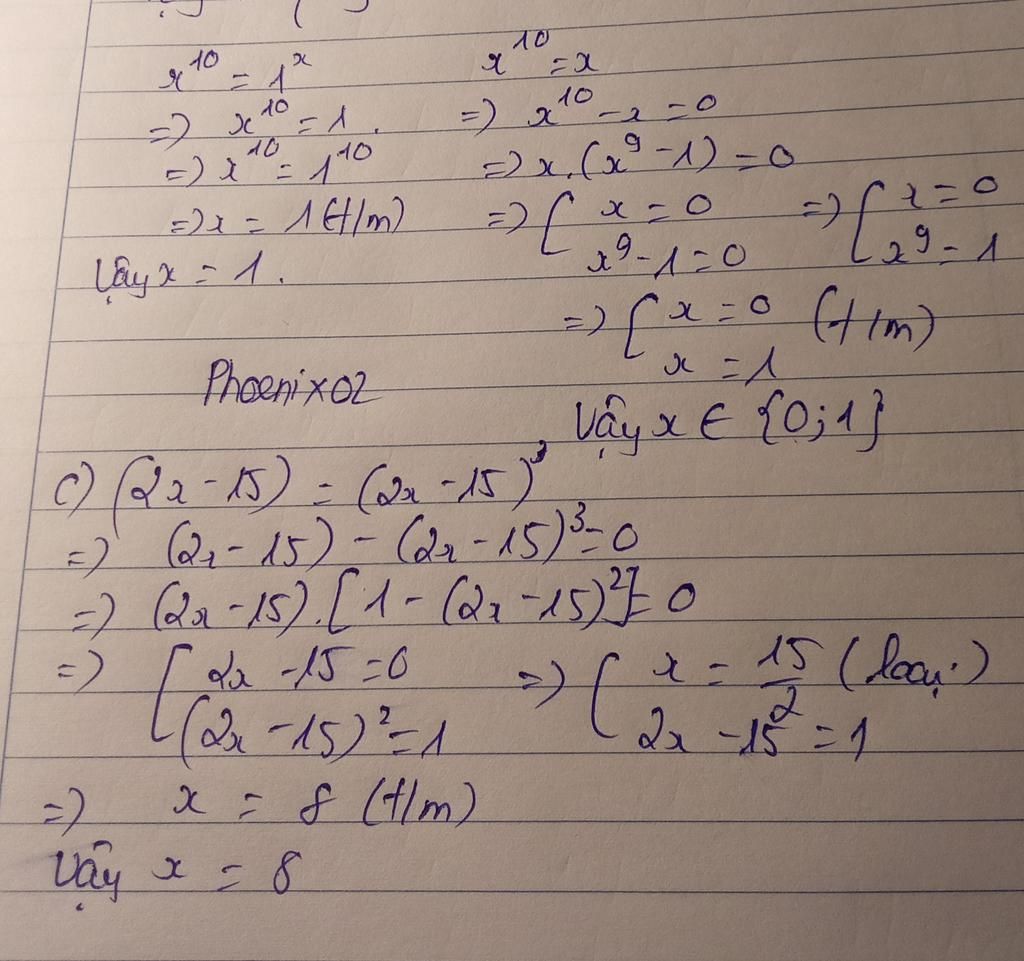 x¹⁰ = 1ˣ
=) x¹⁰ = 1.
=) x¹⁰ = 1¹⁰
=) x = 1 (t/m)
Vậy x = 1.
x¹⁰ = x
=) x¹⁰ - x = 0
=) x.(x⁹ - 1) = 0
=) [ x = 0 =) [ x = 0
x⁹ - 1 = 0 x⁹ = 1
=) [ x = 0 (t/m)
x = 1
Vậy x ∈ {0; 1}
Phoenix02
c) (2x - 15) = (2x - 15)³
=) (2x - 15) - (2x - 15)³ = 0
=) (2x - 15).[1 - (2x - 15)²] = 0
=) [ 2x - 15 = 0 =) [ x = 15/2 (loại)
(2x - 15)² = 1 2x - 15² = 1
=) x = 8 (t/m)
Vậy x = 8